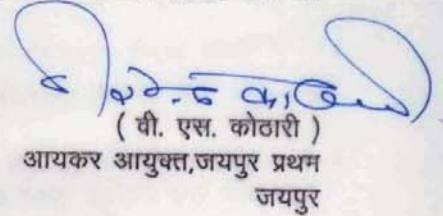 ( वी. एस. कोठारी )
आयकर आयुक्त,जयपुर प्रथम
जयपुर